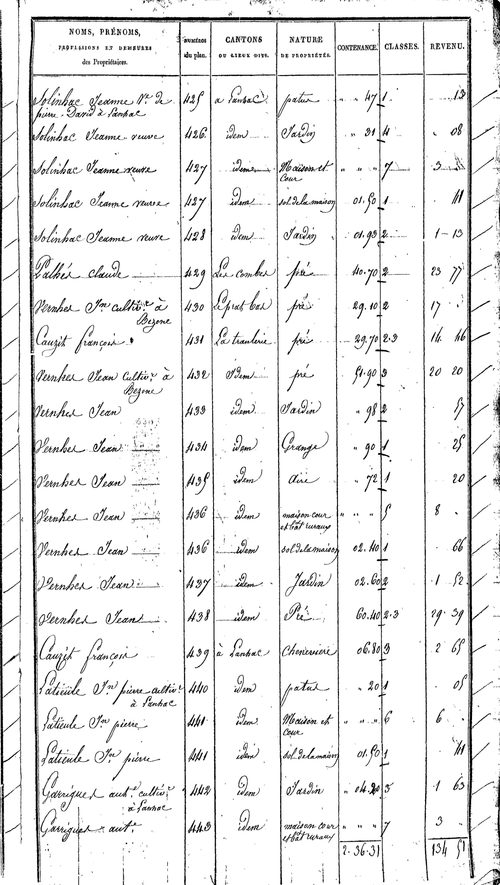 NOMS, PRÉNOMS, NUMÉROS CANTONS NATURE CONTENANCE. CLASSES. REVENU.
PROFESSIONS ET DEMEURES du plan. OU LIEUX DITS. DE PROPRIÉTÉS.
des Propriétaires.
Solinhac Jeanne Ve. de 425 a Lanhac patus " " 47 1 . 13
pierre David à Lanhac
Solinhac Jeanne veuve 426 idem Jardin " 31 4 " 08
Solinhac Jeanne veuve 427 idem Maison et " " " 7 3 "
cour
Solinhac Jeanne veuve 427 idem sol de la maison 01.50 1 41
Solinhac Jeanne veuve 428 idem Jardin 01.93 2 1-13
Palhés claude 429 Les combes pré 40.70 2 23 77
Vernhes Jn. cultivr. à 430 Le prat bas pré 29.10 2 17 .
Bezone
Cauzit françois 431 pré 29.70 2.3 14 46
Vernhes Jean cultivr. à 432 Idem pré 51.90 3 20 20
Bezone
Vernhes Jean 433 idem Jardin " 98 2 57
Vernhes Jean 434 idem Grange " 90 1 25
Vernhes Jean 435 idem Aire " 72 1 20
Vernhes Jean 436 idem maison cour " " " 5 8 .
et bât ruraux
Vernhes Jean 436 idem sol de la maison 02.40 1 66
Vernhes Jean 437 idem Jardin 02.60 2 1 52
Vernhes Jean 438 idem Pré 60.40 2.3 29.39
Cauzit françois 439 à Lanhac Cheneviere 06.80 3 2 65
Latieule Jn pierre cultivr. 440 idem patus " 20 1 05
à Lanhac
Latieule Jn pierre 441 idem Maison et " " " 6 6 .
cour
Latieule Jn pierre 441 idem sol de la maison 01.50 1 41
Garrigues ante. cultivr. 442 idem Jardin 04.20 3 1 63
à Lanhac
Garrigues ante. 443 idem maison cour " " " 7 3 .
et bât ruraux
2.36.31 134 51